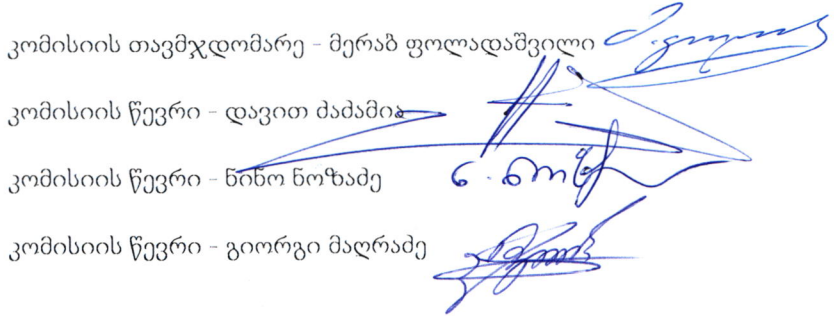 კომისიის თავმჯდომარე - მერაბ ფოლადაშვილი
კომისიის წევრი - დავით ძაძამია
კომისიის წევრი - ნინო ნოზაძე
კომისიის წევრი - გიორგი მაღრაძე